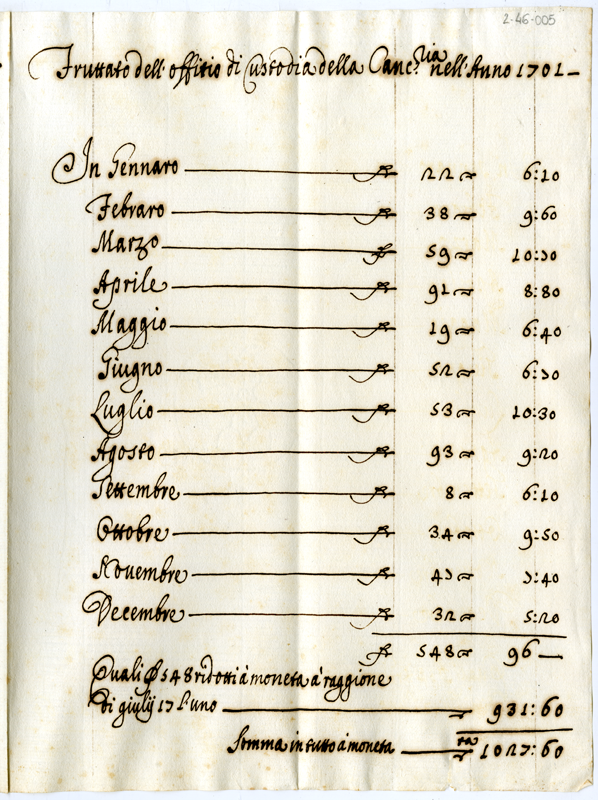 2-46-005
Fruttato dell'offitio di Custodia della Canc.ria nell'Anno 1701
In Gennaro 22 6:10
Febraro 38 9:60
Marzo 59 10:70
Aprile 91 8:80
Maggio 19 6:40
Giugno 52 6:70
Luglio 53 10:30
Agosto 93 9:20
Settembre 8 6:10
Ottobre 34 9:50
Novembre 47 7:40
Decembre 32 5:20
548 96 —
Quali 548 ridotti à moneta à raggione
di giulij 17 l'uno 931:60
Somma in tutto à moneta 1027:60